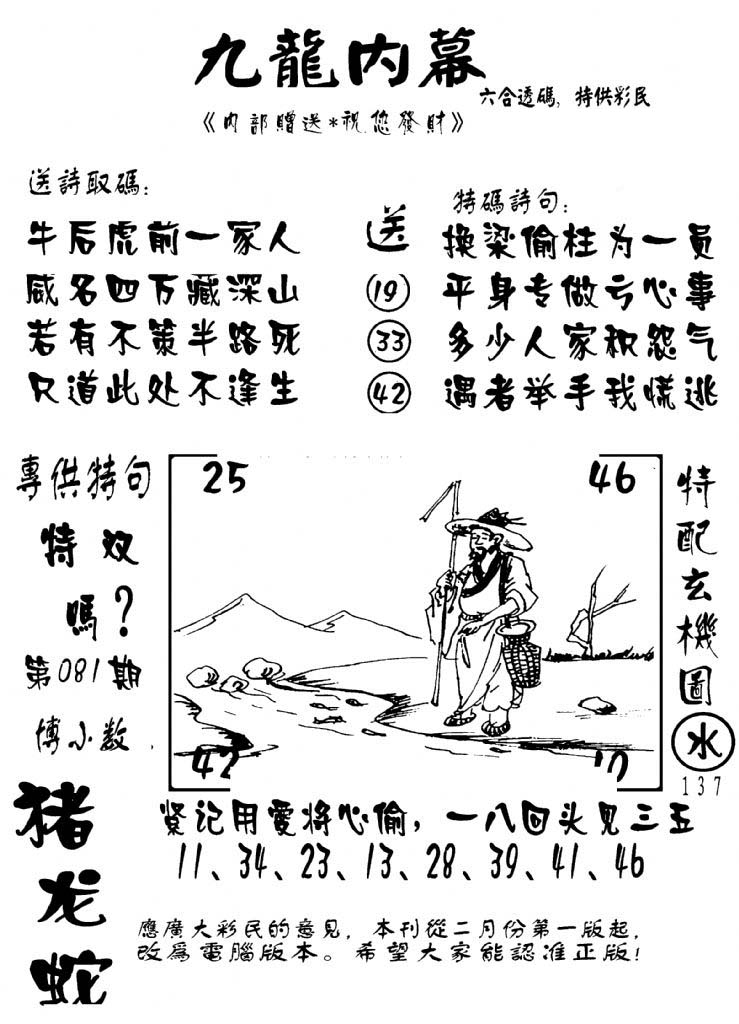 九龍內幕
六合透碼,特供彩民
《內部贈送*祝您發財》
送詩取碼:
牛后虎前一家人
威名四方藏深山
若有不策半路死
只道此处不逢生
送
19
33
42
特碼詩句:
换梁偷柱为一员
平身专做亏心事
多少人家积怨气
遇者举手我慌逃
專供特句
特双
嗎?
第081期
博小数.
25
46
42
10
特配玄機圖
水
137
猪
龙
蛇
紧记用爱将心偷,一八回头见三五
11、34、23、13、28、39、41、46
應廣大彩民的意見,本刊從二月份第一版起,
改為電腦版本。希望大家能認准正版!